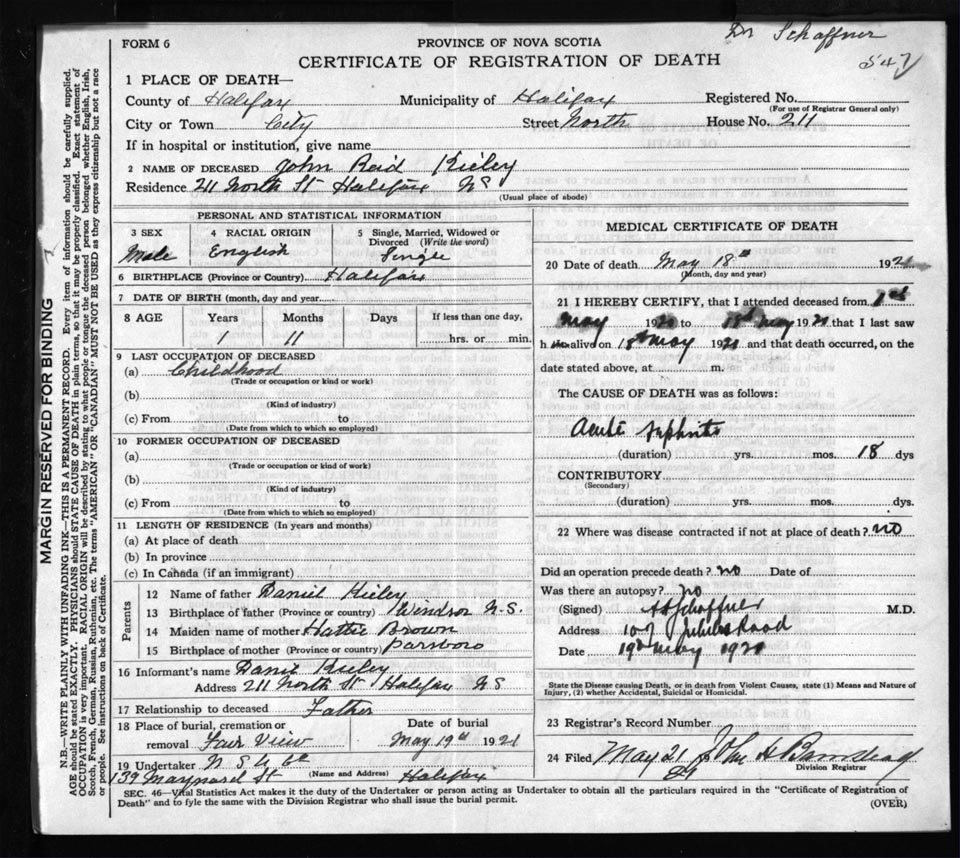 Dr Schaffner
FORM 6
PROVINCE OF NOVA SCOTIA
CERTIFICATE OF REGISTRATION OF DEATH
547
1 PLACE OF DEATH—
County of Halifax Municipality of Halifax Registered No.
(For use of Registrar General only)
City or Town City Street North House No. 211
If in hospital or institution, give name
2 NAME OF DECEASED John Reid Kieley
Residence 211 North St Halifax NS
(Usual place of abode)
PERSONAL AND STATISTICAL INFORMATION
3 SEX 4 RACIAL ORIGIN 5 Single, Married, Widowed or
Divorced (Write the word)
Male English Single
6 BIRTHPLACE (Province or Country) Halifax
7 DATE OF BIRTH (month, day and year)
8 AGE Years Months Days If less than one day,
1 11 hrs. or min.
9 LAST OCCUPATION OF DECEASED
(a) Childhood
(Trade or occupation or kind or work)
(b)
(Kind of industry)
(c) From to
(Date from which to which so employed)
10 FORMER OCCUPATION OF DECEASED
(a)
(Trade or occupation or kind of work)
(b)
(Kind of industry)
(c) From to
(Date from which to which so employed)
11 LENGTH OF RESIDENCE (In years and months)
(a) At place of death
(b) In province
(c) In Canada (if an immigrant)
Parents
12 Name of father Daniel Kieley
13 Birthplace of father (Province or country) Windsor N.S.
14 Maiden name of mother Hattie Brown
15 Birthplace of mother (Province or country) Parsboro
16 Informant's name Daniel Kieley
Address 211 North St Halifax NS
17 Relationship to deceased Father
18 Place of burial, cremation or Date of burial
removal Fair View May 19th 1921
19 Undertaker N S U Co
(Name and Address)
139 Maynard St Halifax
MEDICAL CERTIFICATE OF DEATH
20 Date of death May 18th 1921
(Month, day and year)
21 I HEREBY CERTIFY, that I attended deceased from 1st
May 1921 to 18th May 1921 that I last saw
h alive on 18th May 1921 and that death occurred, on the
date stated above, at m.
The CAUSE OF DEATH was as follows:
Acute Nephritis
(duration) yrs. mos. 18 dys
CONTRIBUTORY
(Secondary)
(duration) yrs. mos. dys.
22 Where was disease contracted if not at place of death? no
Did an operation precede death? no Date of
Was there an autopsy? no
(Signed) Schaffner M.D.
Address 107 Road
Date 19th May 1921
State the Disease causing Death, or in death from Violent Causes, state (1) Means and Nature of
Injury, (2) whether Accidental, Suicidal or Homicidal.
23 Registrar's Record Number
24 Filed May 21 John H
Division Registrar
SEC. 46—Vital Statistics Act makes it the duty of the Undertaker or person acting as Undertaker to obtain all the particulars required in the "Certificate of Registration of
Death" and to fyle the same with the Division Registrar who shall issue the burial permit.
(OVER)
MARGIN RESERVED FOR BINDING
N.B.—WRITE PLAINLY WITH UNFADING INK—THIS IS A PERMANENT RECORD. Every item of information should be carefully supplied.
AGE should be stated EXACTLY. PHYSICIANS should STATE CAUSE OF DEATH in plain terms, so that it may be properly classified. Exact statement of
OCCUPATION is very important. RACIAL ORIGIN will be described by stating to what people or tongue the deceased person belonged whether English, Irish,
Scotch, French, German, Russian, Ruthenian, etc. The terms "AMERICAN" OR "CANADIAN" MUST NOT BE USED as they express citizenship but not a race
or people. See instructions on back of Certificate.